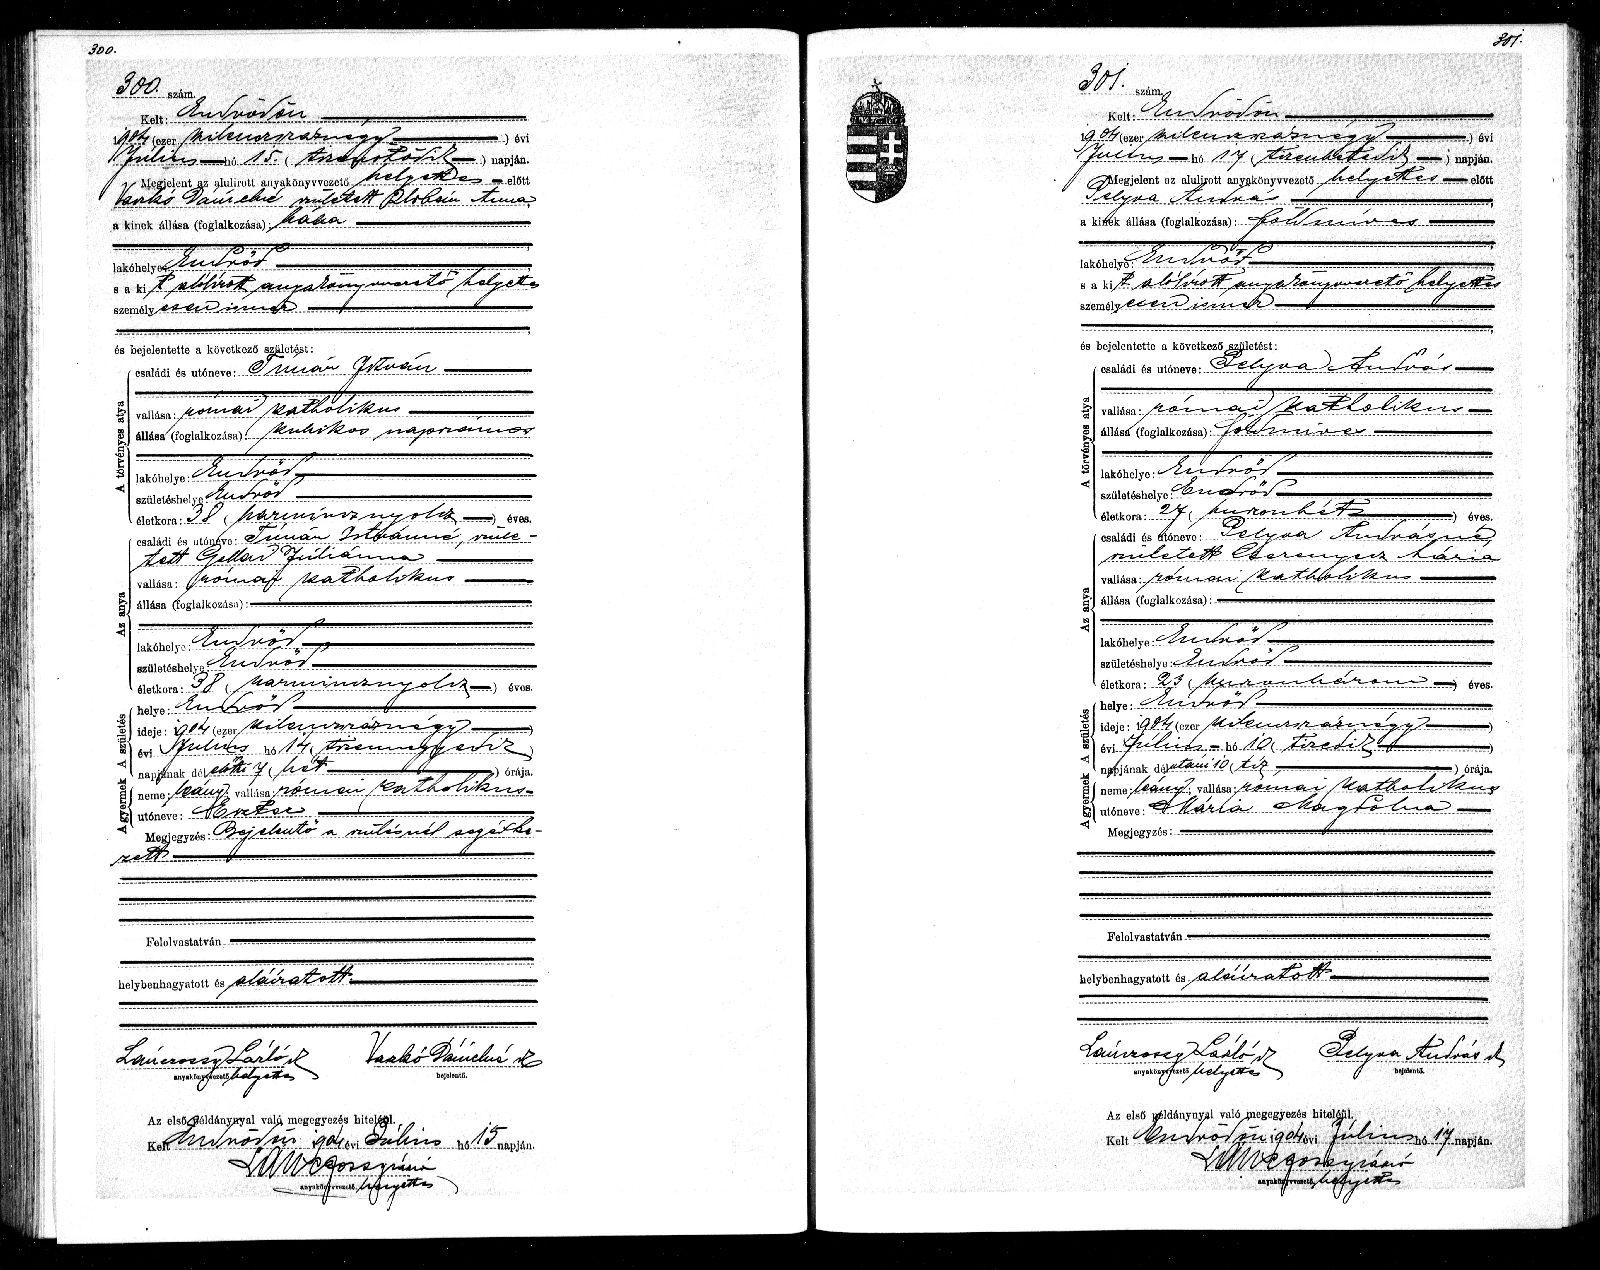 300.
300. szám.
Kelt: Endrődön
1904 (ezer kilencszáznégy) évi
Július hó 15. (tizenötödik) napján.
Megjelent az alulirott anyakönyvvezető helyettes előtt
Dánielné született Anna
a kinek állása (foglalkozása): bába
lakóhelye: Endrőd
s a kit alólírott anyakönyvvezető helyettes
személyesen ismer
és bejelentette a következő születést:
A törvényes atya
családi és utóneve: Tímár István
vallása: római katholikus
állása (foglalkozása): kubikos napszámos
lakóhelye: Endrőd
születéshelye: Endrőd
életkora: 38 (harmincznyolcz) éves.
Az anya
családi és utóneve: Tímár Istvánné, szüle-
tett Gellai Júliánna
vallása: római katholikus
állása (foglalkozása):
lakóhelye: Endrőd
születéshelye: Endrőd
életkora: 38 (harmincznyolcz) éves.
A születés
helye: Endrőd
ideje: 1904 (ezer kilencszáznégy)
évi Július hó 14 (tizennegyedik)
napjának délelőtti 7 (hét) órája.
A gyermek
neme: leány, vallása: római katholikus
utóneve: Eszter
Megjegyzés: Bejelentő a szülésnél segédke-
zett
Felolvastatván
helybenhagyatott és aláíratott
László helyettes anyakönyvvezető
Dánielné bejelentő.
Az első példánynyal való megegyezés hiteléül.
Kelt Endrődön 1904 évi Július hó 15 napján.
László
anyakönyvvezető helyettes
301.
301. szám.
Kelt: Endrődön
1904 (ezer kilencszáznégy) évi
Július hó 17 (tizenhetedik) napján.
Megjelent az alulirott anyakönyvvezető helyettes előtt
Pelyva András
a kinek állása (foglalkozása): földmíves
lakóhelye: Endrőd
s a kit alólírott anyakönyvvezető helyettes
személyesen ismer
és bejelentette a következő születést:
A törvényes atya
családi és utóneve: Pelyva András
vallása: római katholikus
állása (foglalkozása): földmíves
lakóhelye: Endrőd
születéshelye: Endrőd
életkora: 27 (huszonhét) éves.
Az anya
családi és utóneve: Pelyva Andrásné
született Cserenyecz Mária
vallása: római katholikus
állása (foglalkozása):
lakóhelye: Endrőd
születéshelye: Endrőd
életkora: 23 (huszonhárom) éves.
A születés
helye: Endrőd
ideje: 1904 (ezer kilencszáznégy)
évi Július hó 10 (tizedik)
napjának délutáni 10 (tíz) órája.
A gyermek
neme: leány, vallása: római katholikus
utóneve: Mária Magdolna
Megjegyzés:
Felolvastatván
helybenhagyatott és aláíratott
László helyettes anyakönyvvezető
Pelyva András bejelentő.
Az első példánynyal való megegyezés hiteléül.
Kelt Endrődön 1904 évi Július hó 17 napján.
László
anyakönyvvezető helyettes